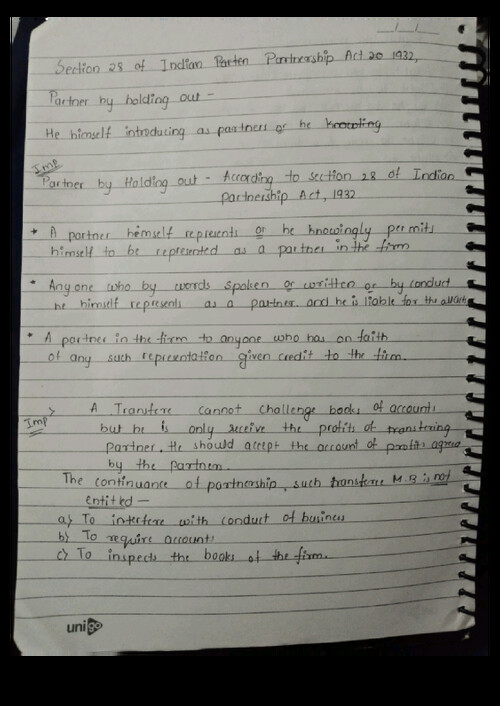 Section 28 of Indian Parten Partnership Act 20 1932,
Partner by holding out -
He himself introducing as partners or he knowling
Imp
Partner by Holding out - According to section 28 of Indian
Partnership Act, 1932
* A partner hemself represents or he knowingly permits
himself to be represented as a partner in the firm
* Any one who by words spoken or written or by conduct
he himself represents as a partner and he is liable for the
* A partner in the firm to anyone who has on faith
of any such representation given credit to the firm.
Imp
> A Transfere cannot challenge books of accounts
but he is only receive the profits of transfering
partner. He should accept the account of profits agree
by the partners.
The continuance of partnership, such transferee M.B is not
entitled -
a) To interfere with conduct of business
b) To require accounts
c) To inspects the books of the firm.
unigo